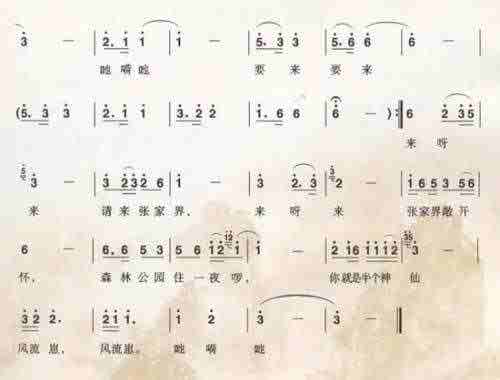 3 － | 2. 1 1 | 1 － | 5. 3 3 | 5. 6 6 | 6 －
吔 嗬 吔 要 来 要 来
(5. 3 3 | 2. 1 1 | 3. 2 2 | 1. 6 6 | 6 － ) :| 6 2 3 5
来 呀
3 － | 3 2 3 2 6 | 1 － | 3 2. 3 | 2 － | 1 6 5 3 5 6
来 请来张家界, 来 呀 来 张家界敞开
6 － | 6. 6 5 3 | 5 6 1 2 1 | 1 － | 2 1 6 1 1 1 2 | 3 －
怀, 森林公园住一夜啰, 你就是半个神 仙
3 2 2. | 2 1 1. | 1 2 | 3 － | 3 － ‖
风流崽, 风流崽。 吔 嗬 吔